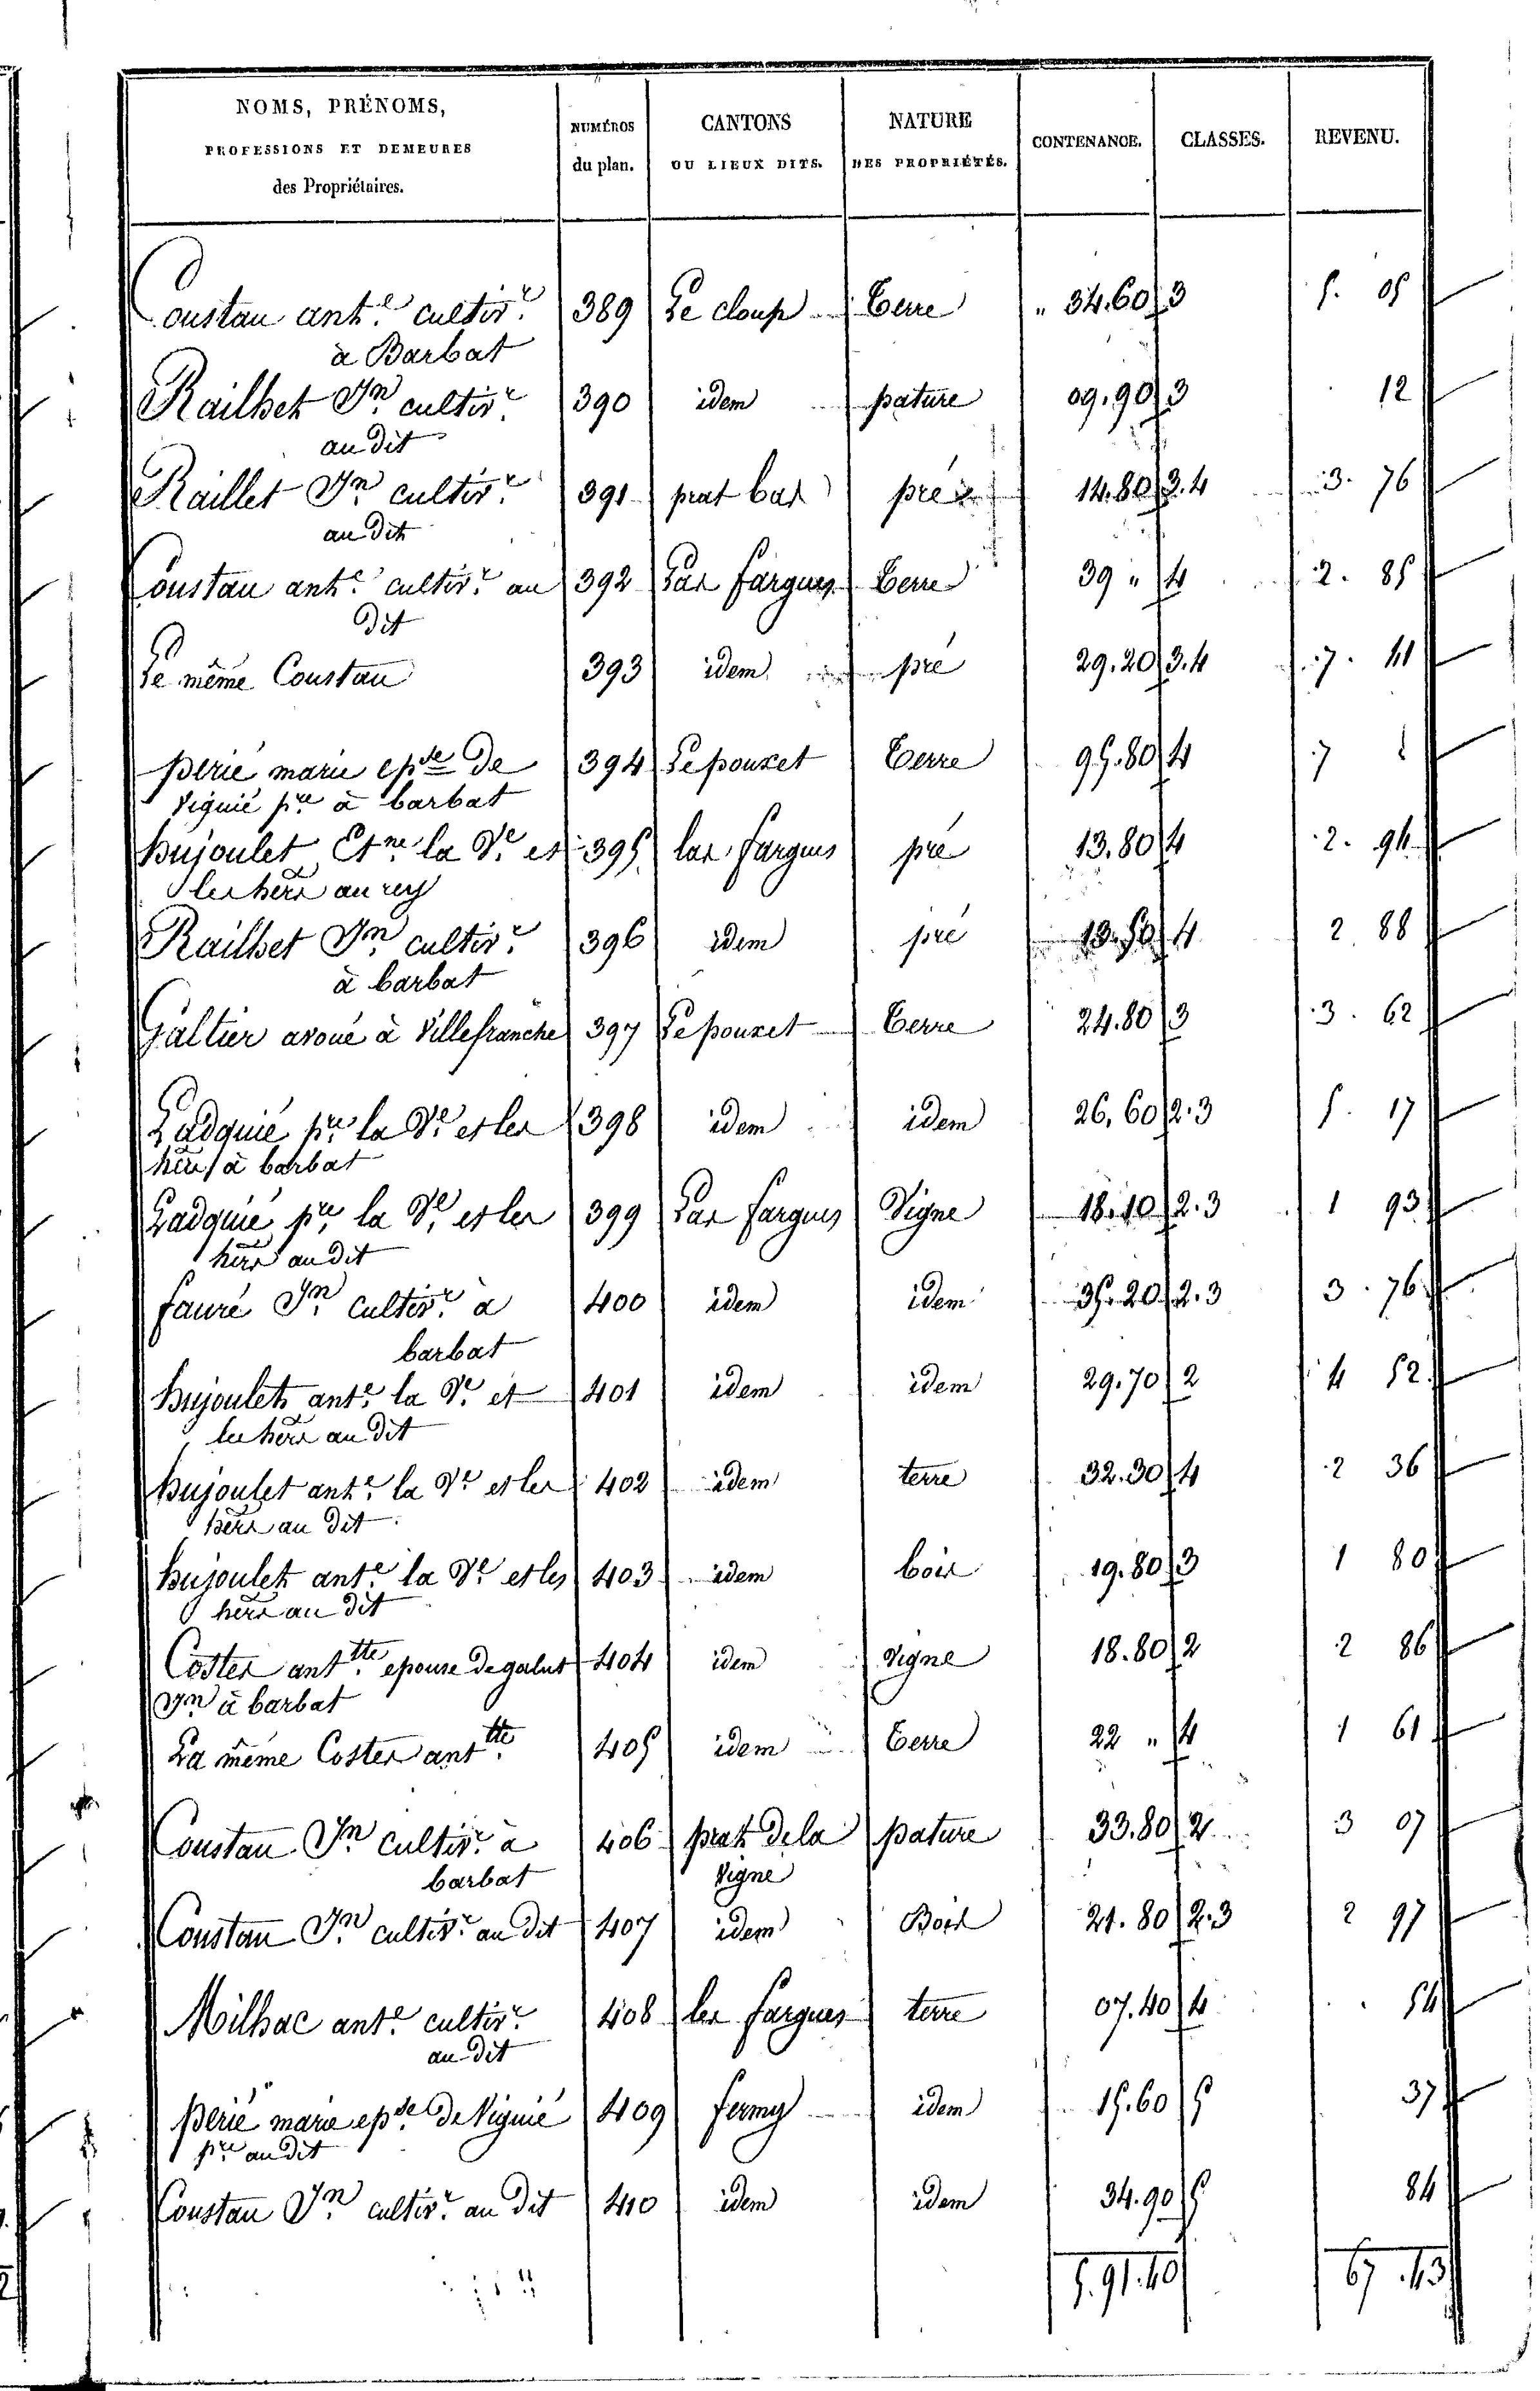 NOMS, PRÉNOMS, PROFESSIONS ET DEMEURES des Propriétaires. NUMÉROS du plan. CANTONS OU LIEUX DITS. NATURE DES PROPRIÉTÉS. CONTENANCE. CLASSES. REVENU.
Coustau ant.e cultiv.r 389 Le cloup Terre " 34.60 3 5. 05
à Barbat
Railhet Jn cultiv.r 390 idem pature 09.90 3 12
au dit
Raillet Jn cultiv.r 391 prat bas pré 14.80 3.4 3. 76
au dit
Coustau ant.e cultiv.r au 392 Las fargues Terre 39 " 4 2. 85
dit
Le même Coustau 393 idem pré 29.20 3.4 7. 41
perié marie epse de 394 Le pouzet Terre 95.80 4 7
Viguié p.re à barbat
bujoulet Etne la Ve et 395 las fargues pré 13.80 4 2. 94
les hers au rey
Railhet Jn cultiv.r 396 idem pré 13.50 4 2 88
à barbat
Galtier avoué à Villefranche 397 Le pouzet Terre 24.80 3 3. 62
Ladquié p.re la Ve et les 398 idem idem 26.60 2.3 5. 17
hers à barbat
Ladquié p.re la Ve et les 399 Las fargues Vigne 18.10 2.3 1 93
hers au dit
fauré Jn cultiv.r à 400 idem idem 35.20 2.3 3. 76
barbat
bujoulet ant.e la Ve et 401 idem idem 29.70 2 4 52
les hers au dit
bujoulet ant.e la Ve et les 402 idem terre 32.30 4 2 36
hers au dit
bujoulet ant.e la Ve et les 403 idem bois 19.80 3 1 80
hers au dit
Costes anttte epouse de galut 404 idem vigne 18.80 2 2 86
Jn à barbat
La même Costes antte 405 idem Terre 22 " 4 1 61
Coustau Jn cultiv.r à 406 prat de la pature 33.80 2 3 07
barbat Vigne
Coustau Jn cultiv.r au dit 407 idem Bois 21.80 2.3 2 97
Milhac ant.e cultiv.r 408 les fargues terre 07.40 4 54
au dit
perié marie epse de Viguié 409 fermy idem 15.60 5 37
p.re au dit
Coustau Jn cultiv.r au dit 410 idem idem 34.90 5 84
5.91.40 67.43